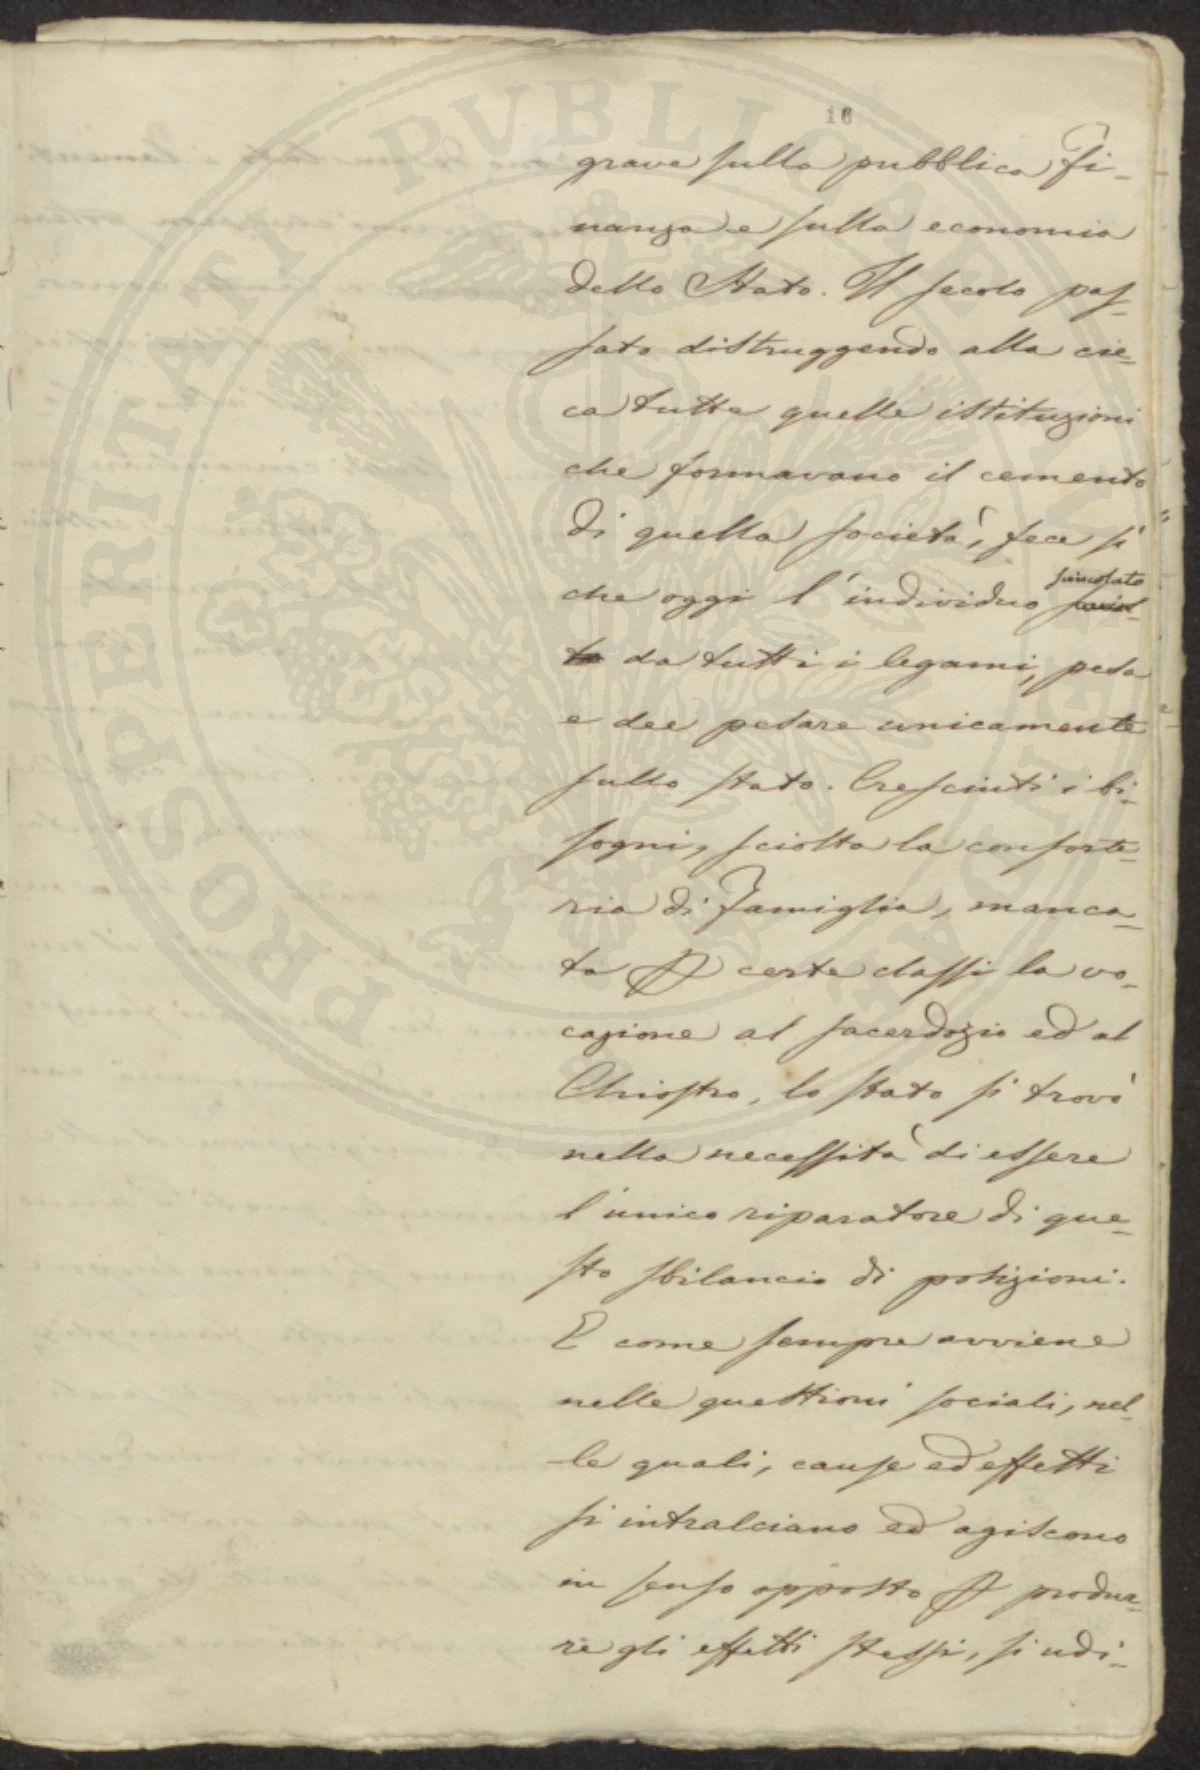 16
grava sulla pubblica Fi-
nanza e sulla economia
dello Stato. Il secolo pas-
sato distruggendo alla cie-
ca tutte quelle istituzioni
che formavano il cemento
di quella società, fece sì
svincolato
che oggi l'individuo
to da tutti i legami, pesa
e dee pesare unicamente
sullo stato. Cresciuti i bi-
sogni, sciolta la consorte-
ria di Famiglia, manca-
ta a certe classi la vo-
cazione al sacerdozio ed al
Chiostro, lo stato si trovò
nella necessità di essere
l'unico riparatore di que-
sto sbilancio di posizioni.
E come sempre avviene
nelle questioni sociali, nel-
le quali, cause ed effetti
si intralciano ed agiscono
in senso opposto a produr-
re gli effetti stessi, si udi-
PROSPERITATI PVBLICAE